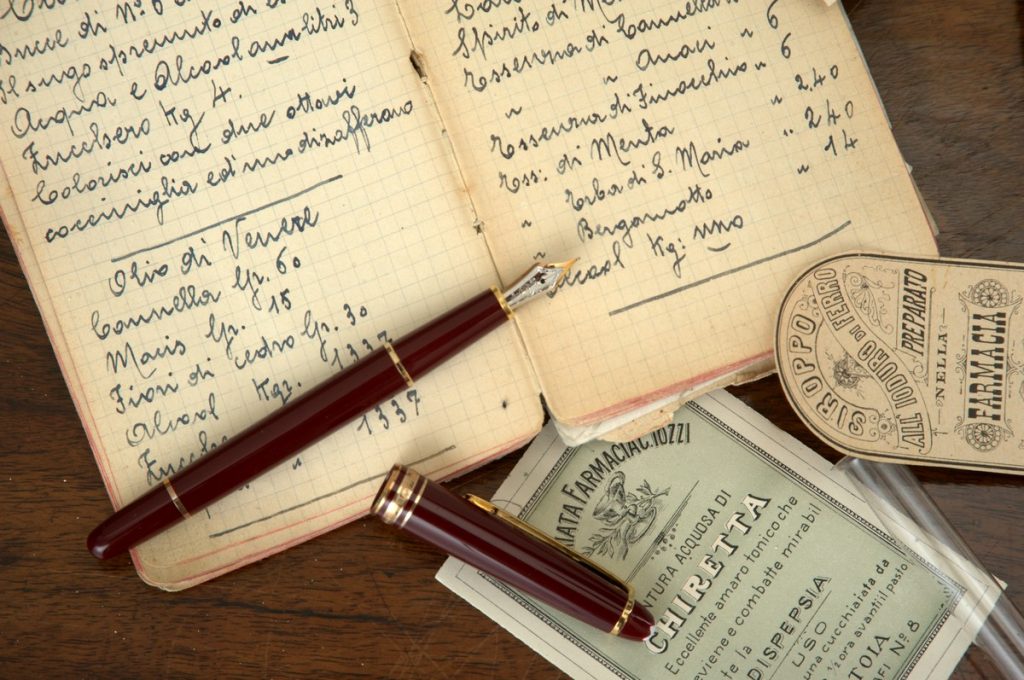 di N.º 6
Il sugo spremuto di
Acqua e Alcool ana litri 3
Zucchero Kg 4.
Colorisci con due ottavi
cocciniglia ed uno di zafferano
Olio di Venere
Cannella Gr. 60
Macis Gr. 15
Fiori di cedro Gr. 30
Alcool Kgr. 1337
" 1337
Spirito di
Essenza di Cannella
" Anaci " 6
Essenza di Finocchio " 6
Ess: di Menta " 2.40
" Erba di S. Maria " 240
" Bergamotto " 14
Alcool Kg: uno
SIROPPO
ALL'IODURO DI FERRO
PREPARATO
NELLA
FARMACIA
FARMACIA C. IOZZI
TURA ACQUOSA DI
CHIRETTA
Eccellente amaro tonico che
viene e combatte mirabil
te la
DISPEPSIA
USO
una cucchiaiata da
½ ora avanti il pasto
TOIA
FI N.º 8